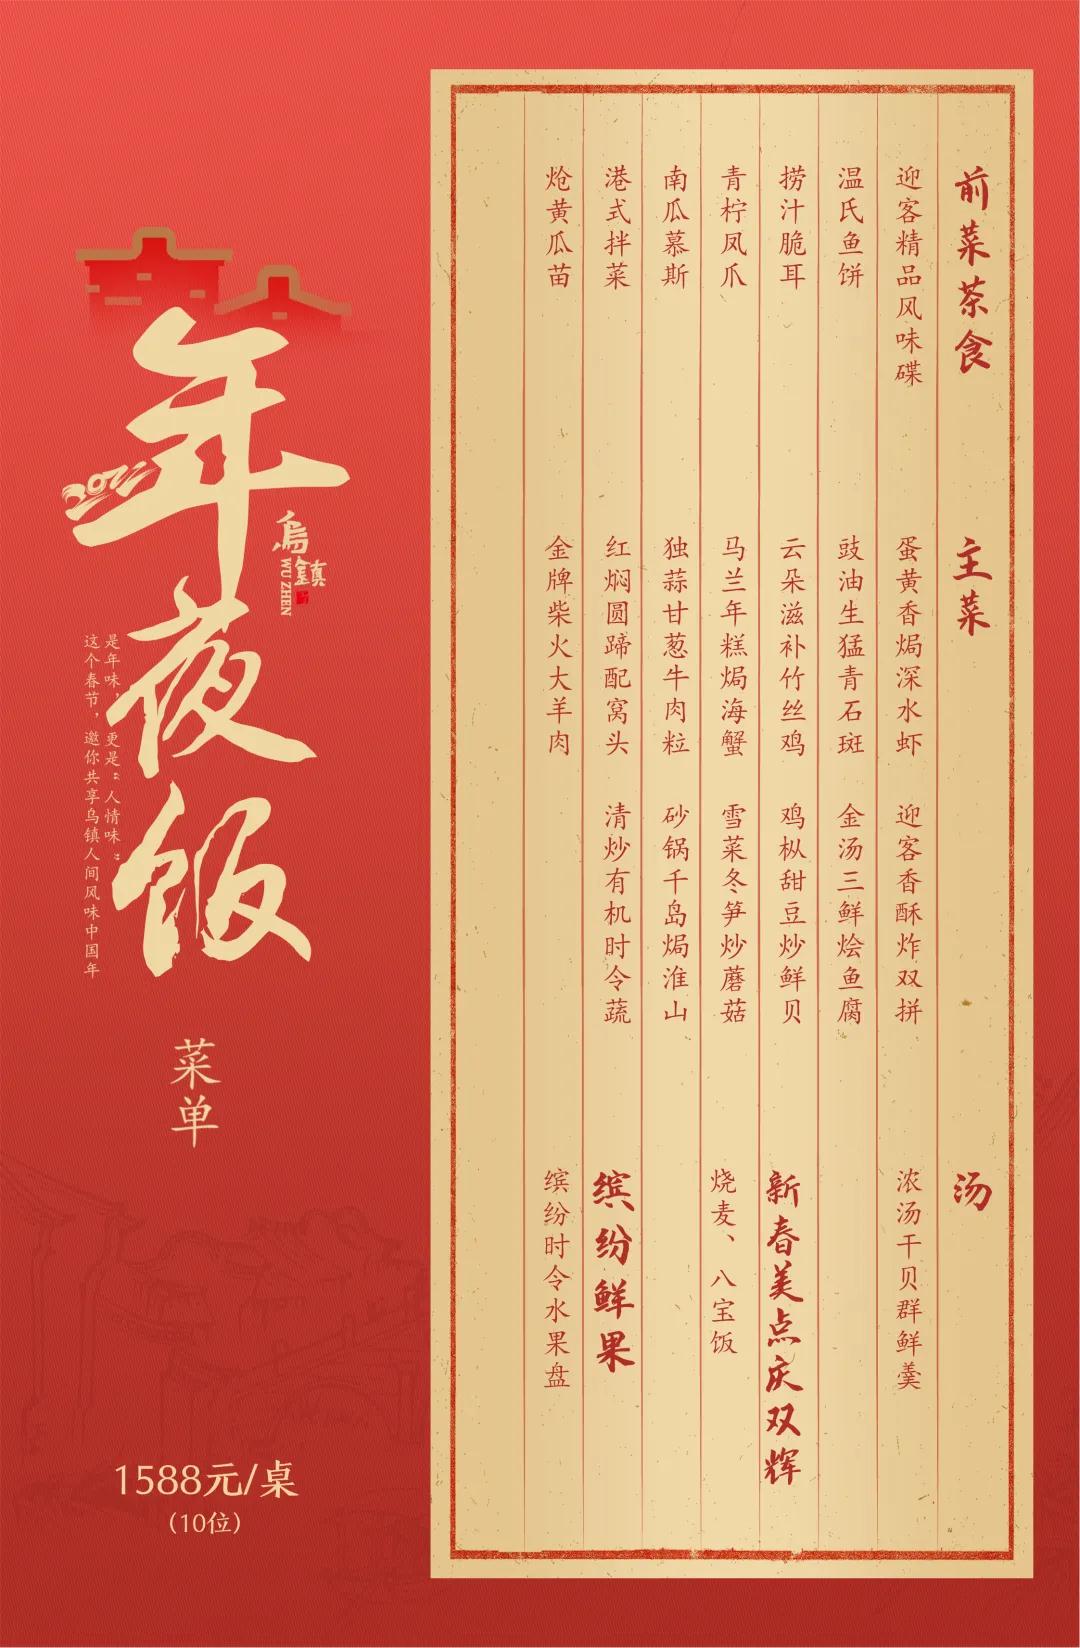 年夜饭
2022
乌镇
WU ZHEN
是年味，更是“人情味”
这个春节，邀你共享乌镇人间风味中国年
菜单
1588元/桌
（10位）
前菜茶食
迎客精品风味碟
温氏鱼饼
捞汁脆耳
青柠凤爪
南瓜慕斯
港式拌菜
炝黄瓜苗
主菜
蛋黄香焗深水虾
豉油生猛青石斑
云朵滋补竹丝鸡
马兰年糕焗海蟹
独蒜甘葱牛肉粒
红焖圆蹄配窝头
金牌柴火大羊肉
迎客香酥炸双拼
金汤三鲜烩鱼腐
鸡枞甜豆炒鲜贝
雪菜冬笋炒蘑菇
砂锅千岛焗淮山
清炒有机时令蔬
汤
浓汤干贝群鲜羹
新春美点庆双辉
烧麦、八宝饭
缤纷鲜果
缤纷时令水果盘